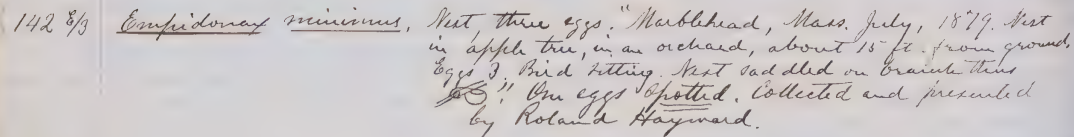 142 E/3 Empidonax minimus. Nest, three eggs. "Marblehead, Mass. July, 1879. Nest
in apple tree, in an orchard, about 15 ft. from ground,
Eggs 3. Bird sitting. Nest saddled on branch thus
" One eggs spotted. Collected and presented
by Roland Hayward.